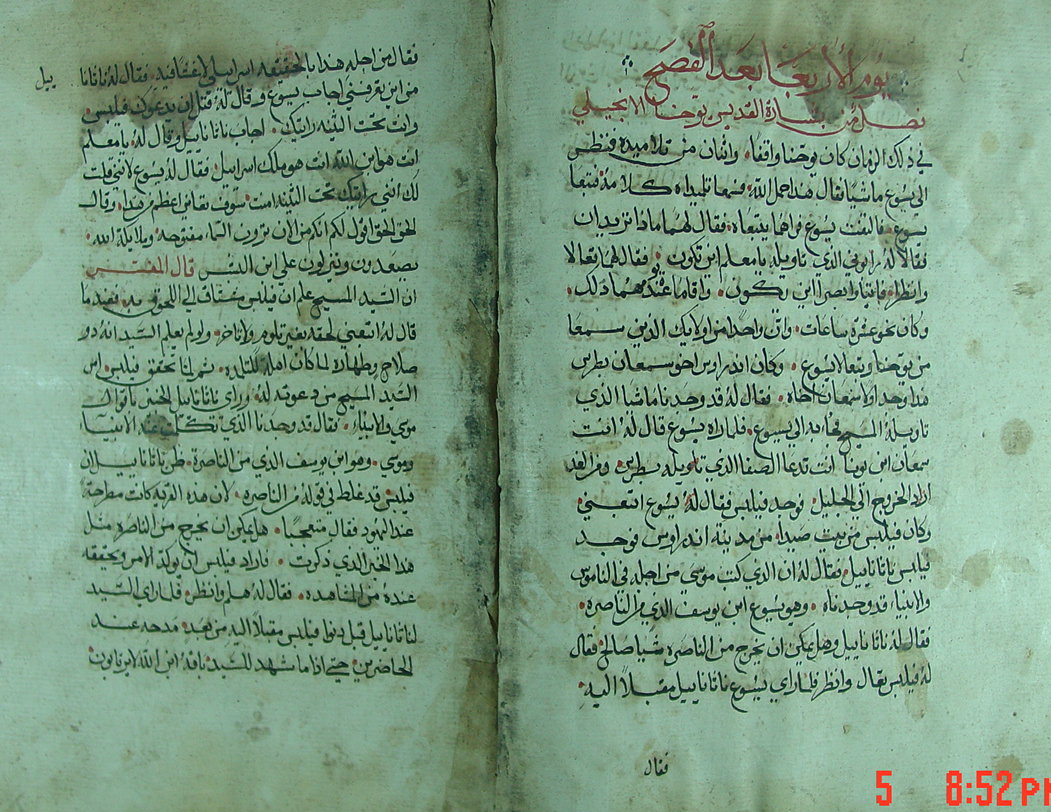 يوم الاربعا بعد الفصح
فصل من بشارة القديس يوحنا الانجيلي
في ذلك الزمان كان يوحنا واقفا واثنان من تلاميذه فنظر
الى يسوع ماشيا فقال هذا حمل الله فسمعا تلميذاه كلامه فتبعا
يسوع فالتفت يسوع فراهما يتبعاه فقال لهما ماذا تريدان
فقالا له رابوني الذي تاويله يا معلم اين تكون فقال لهما تعالا
وانظرا فاتيا وابصرا اين يكون واقاما عنده يومهما ذلك
وكان نحو عشرة ساعات وان واحدا من اولايك الذين سمعا
من يوحنا وتبعا لايسوع وكان اندراوس اخو سمعان بطرس
هذا وجد اولا سمعان اخاه فقال له قد وجدنا ماشيا الذي
تاويله المسيح فجا به الى يسوع فلما راه يسوع قال له انت
سمعان ابن يونا انت تدعا الصفا الذي تاويله بطرس ومن الغد
اراد الخروج الى الجليل فوجد فيلبس فقال له يسوع اتبعني
وكان فيلبس من بيت صيدا من مدينة اندراوس فوجد
فيلبس ناثاناييل فقال له ان الذي كتب موسى من اجله في الناموس
والانبياء قد وجدناه وهو يسوع ابن يوسف الذي من الناصره
فقال له ناثاناييل وهل يمكن ان يخرج من الناصره شيا صالح فقال
له فيلبس تعال وانظر فلما راي يسوع ناثاناييل مقبلا اليه
فقال
فقال من اجله هذا بالحقيقه اسراييلي لا غش فيه فقال له ناثانا
ييل
من اين تعرفني اجاب يسوع وقال له قبل ان يدعوك فيلبس
وانت تحت التينه رايتك اجاب ناثاناييل وقال له يا معلم
انت هو ابن الله انت هو ملك اسراييل فقال له يسوع لانني قلت
لك انني رايتك تحت التينه امنت سوف تعاين اعظم من هذا وقال
الحق الحق اقول لكم انكم من الان ترون السما مفتوحه وملايكة الله
يصعدون وينزلون على ابن البشر قال المفسر
ان السيد المسيح علم ان فيلبس مشتاق الى اللحوق به فعندما
قال له اتبعني لحقه بغير تلوم ولا تاخر ولو لم يعلم السيد انه ذو
صلاح وطهاره لما كان اهله للتلمذه ثم لما تحقق فيلبس امر
السيد المسيح من دعوته له وراي ناثاناييل الخبير باقوال
موسى والانبياء فقال قد وجدنا الذي تكلمت عنه الانبياء
وموسى وهو ابن يوسف الذي من الناصرة ظن ناثاناييل ان
فيلبس قد غلط في قوله من الناصره لان هذه القريه كانت مطرحة
عند اليهود فقال متعجبا هل يمكن ان يخرج من الناصره مثل
هذا الخير الذي ذكرت فاراد فيلبس ان يوكد الامر ويحققه
عنده من المشاهده فقال له هلم وانظر فلما راي السيد
لناثاناييل قبل دنوا فيلبس مقبلا اليه من بعد مدحه عند
الحاضرين حتى اذا ما شهد للسيد بانه ابن الله لا يرتابون